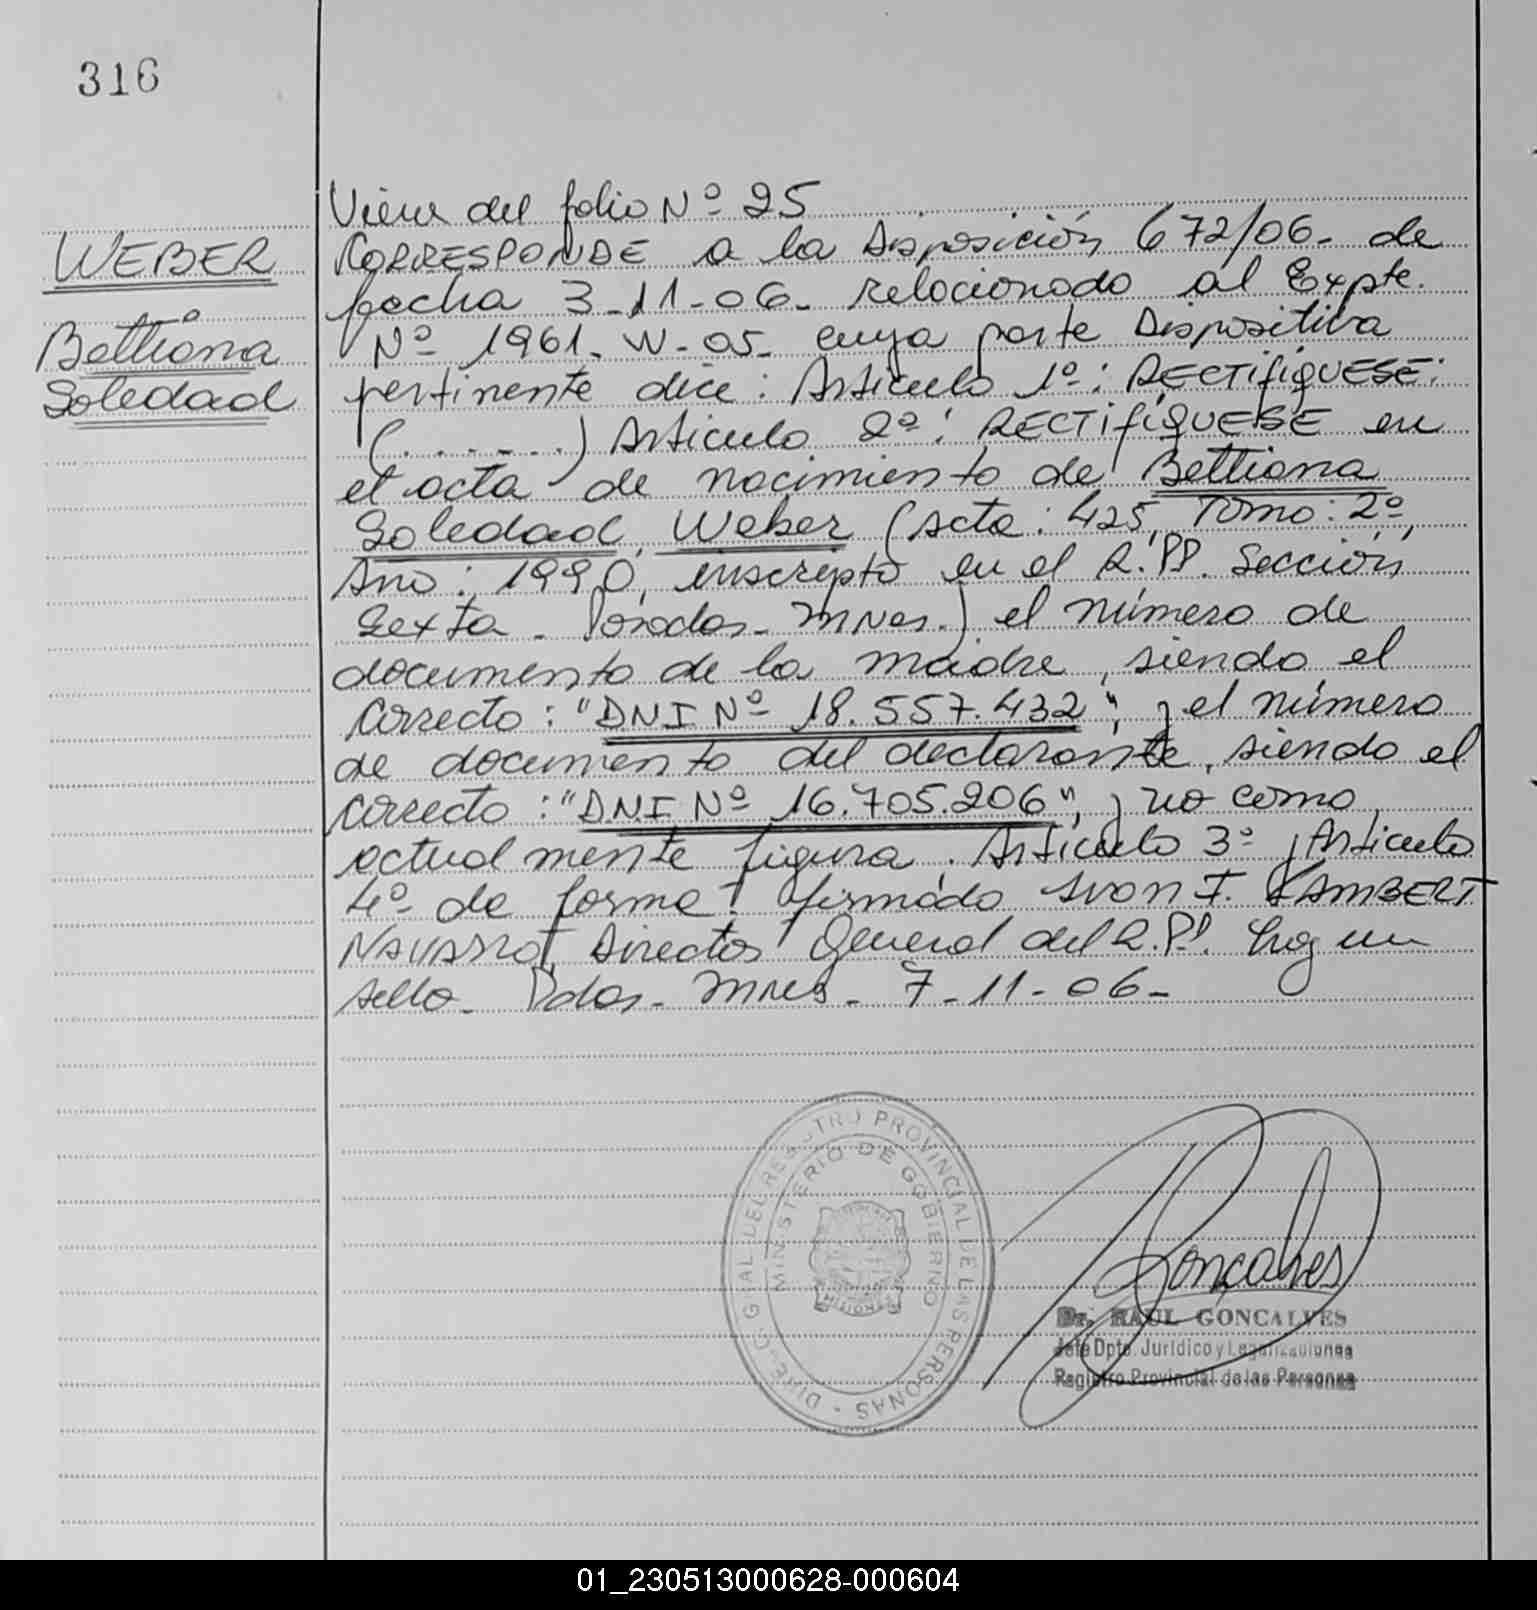 316
WEBER
Bettiana
Soledad
Viene del folio Nº 25
CORRESPONDE a la Disposición 672/06- de
fecha 3-11-06- relacionado al Expte.
Nº 1961-W-05- cuya parte Dispositiva
pertinente dice: Articulo 1º: RECTIFIQUESE:
(......) Articulo 2º: RECTIFIQUESE en
el acta de nacimiento de Bettiana
Soledad Weber (Acta: 425, Tomo: 2º,
Año: 1990, inscripta en el R.PP. Sección
Sexta - Posadas - Mnes.) el número de
documento de la madre, siendo el
Correcto: "DNI Nº 18.557.432", y el número
de documento del declarante, siendo el
correcto: "DNI Nº 16.705.206", y no como
actualmente figura. Articulo 3º y Articulo
4º de forma. firmado Ivon F. LAMBERT
NAVARRO, Director General del R.PP. hay un
sello - Pdas - Mnes - 7-11-06-
DIREC. GRAL. DEL REGISTRO PROVINCIAL DE LAS PERSONAS
MINISTERIO DE GOBIERNO
MISIONES
Goncalves
Dr. RAUL GONCALVES
Jefe Dpto. Jurídico y Legalizaciones
Registro Provincial de las Personas
01_230513000628-000604